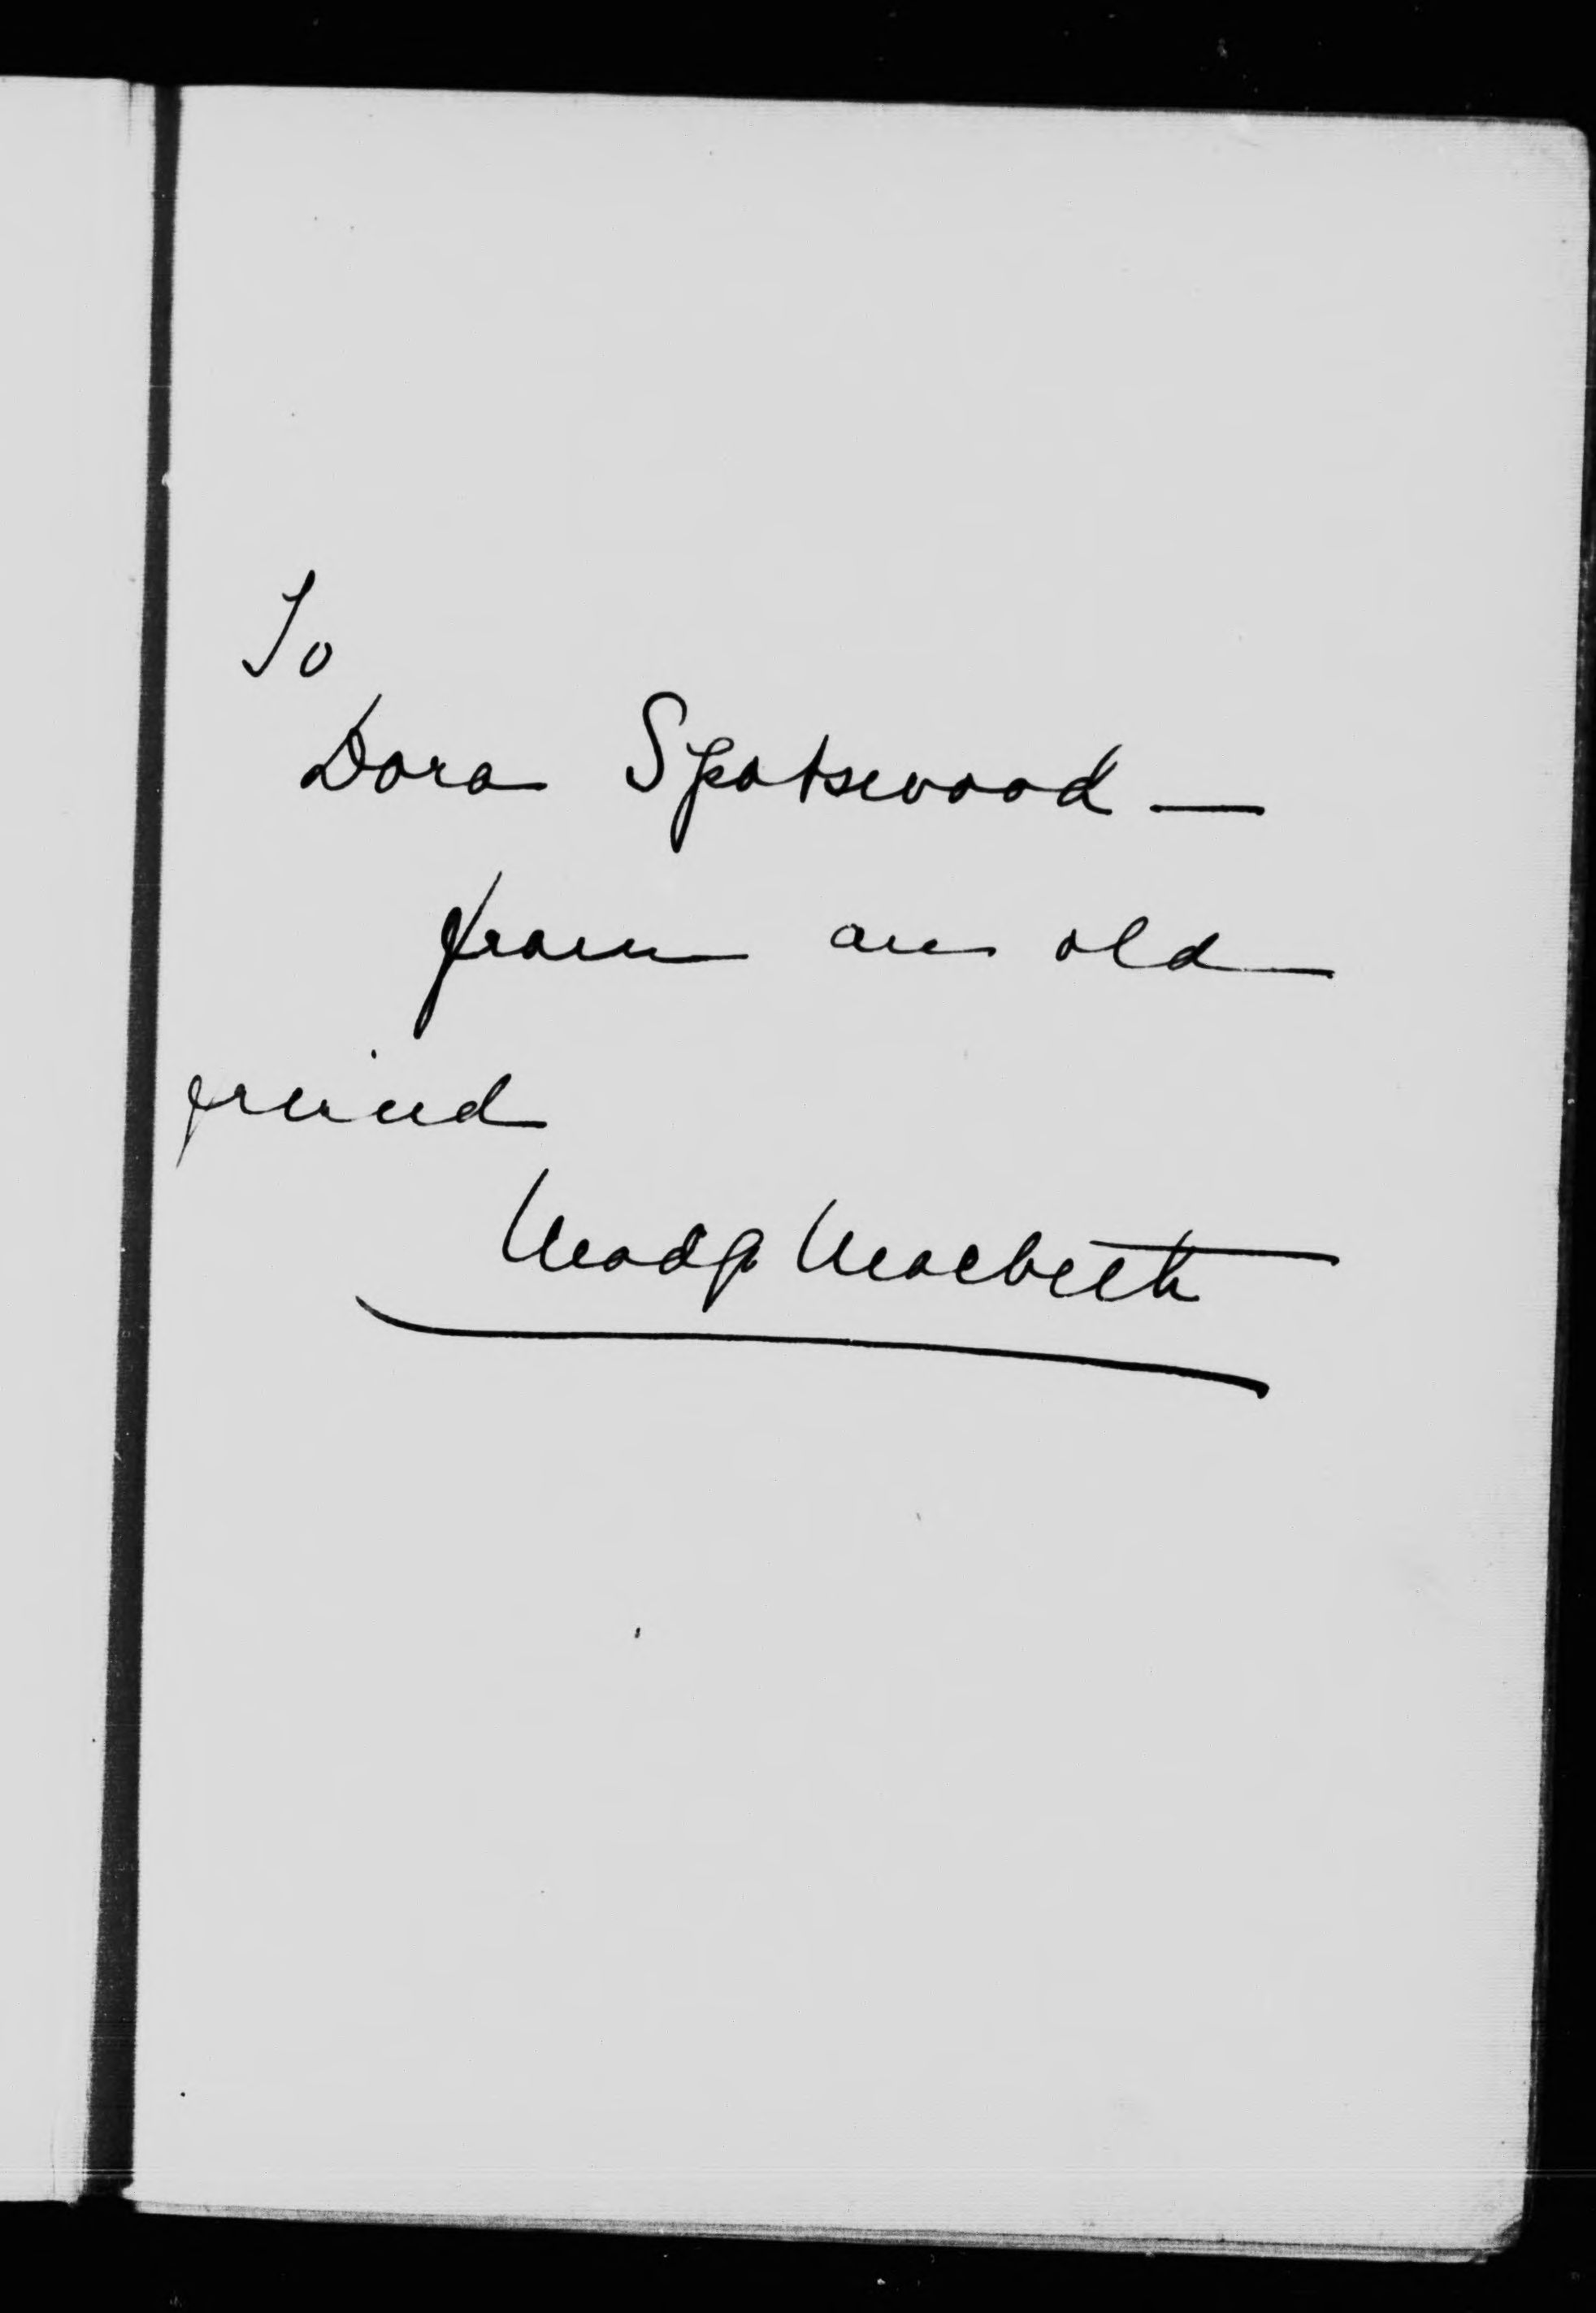 To
Dora Spotswood —
from an old
friend
Madge Macbeth